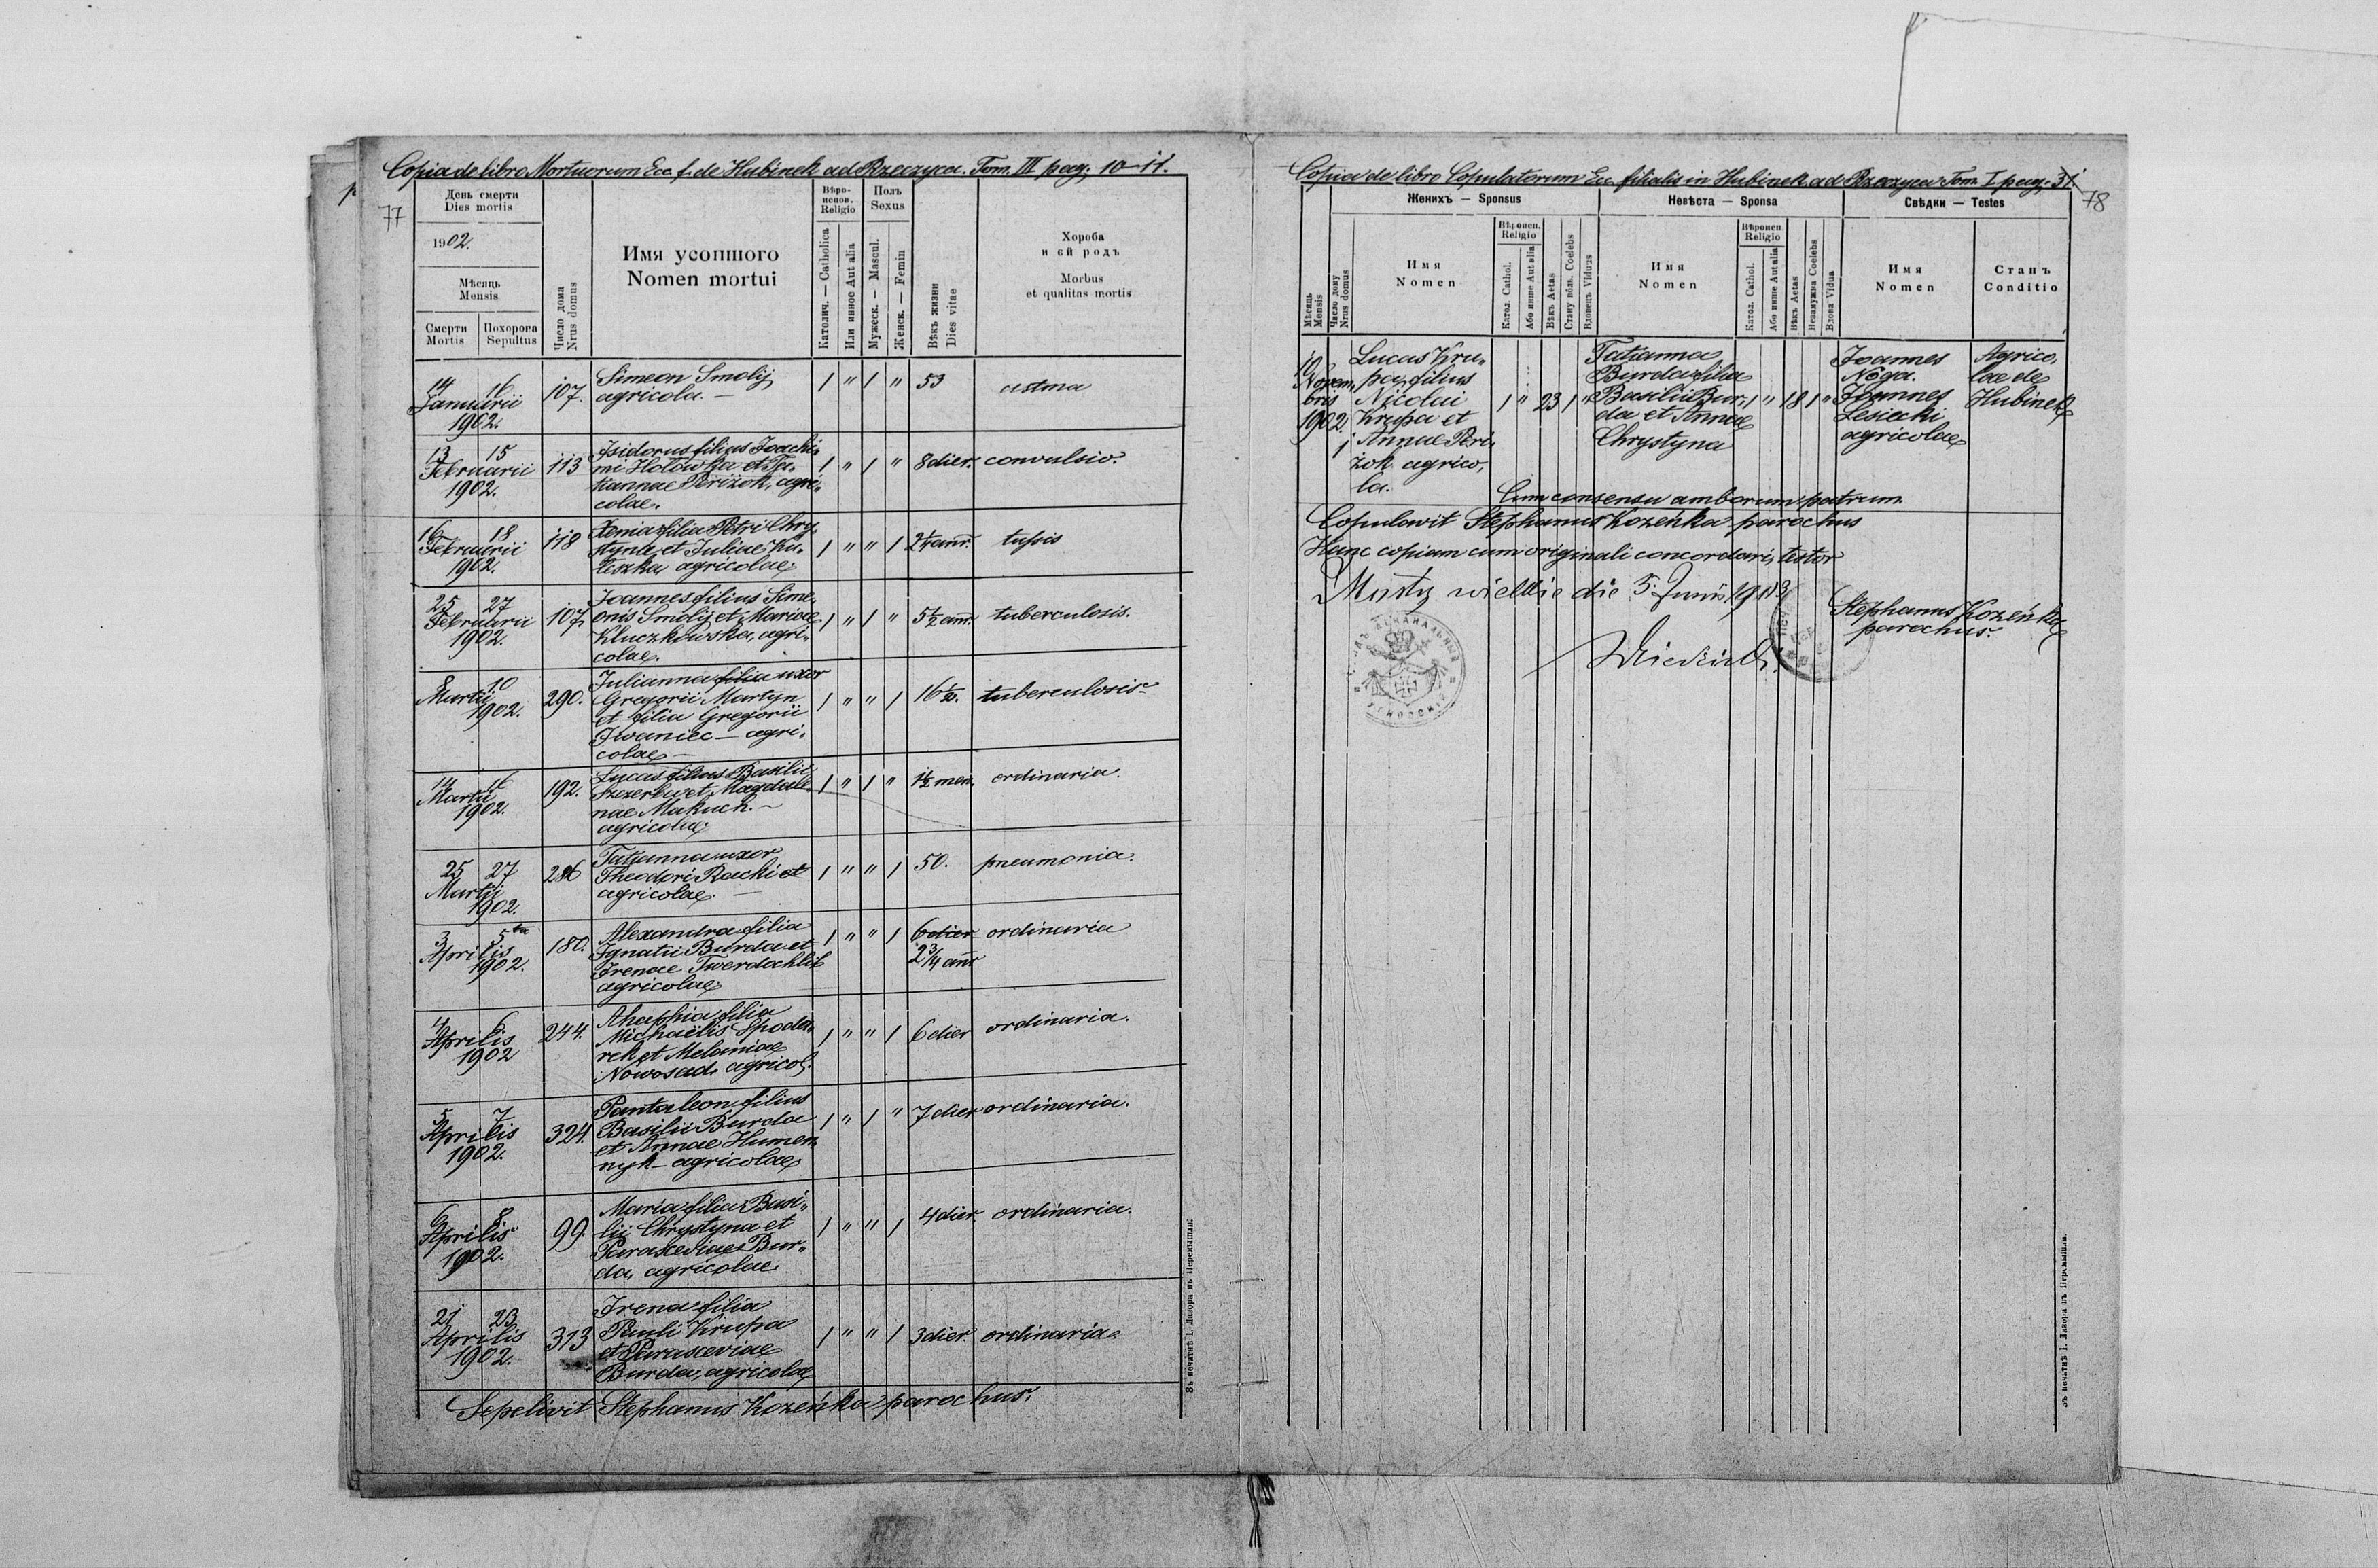 Copia de libro Mortuorum Ecc. f. de Hubinek ad Rzeczyca. Tom. III pag. 10-11.
77
День смерти
Dies mortis
1902.
Мѣсяць
Mensis
Смерти
Mortis
Похорона
Sepultus
Число дома
Nrus domus
Имя усопшого
Nomen mortui
Вѣро-
испов.
Religio
Католич. — Catholica
Или инное Aut alia
Полъ
Sexus
Мужеск. — Mascul.
Женск. — Femin
Вѣкъ жизни
Dies vitae
Хороба
и єй родъ
Morbus
et qualitas mortis
14 16
Januarii
1902.
107.
Simeon Smolij
agricola. —
1 " 1 " 53 astma
13 15
Februarii
1902.
113
Isidorus filius Joachi-
mi Holowka et Ta-
tiannae Perizok, agri-
colae.
1 " 1 " 8 dier. convulsio.
16 18
Februarii
1902.
118
Xenia filia Petri Chry-
styna et Juliae Ku-
leszka agricolae.
1 " " 1 2¼ ann. tussis
25 27
Februarii
1902.
107.
Joannes filius Sime-
onis Smolij et Mariae
Kluczkowska, agri-
colae.
1 " 1 " 5½ ann. tuberculosis.
8 10
Martii
1902.
290.
Julianna filia uxor
Gregorii Martyn
et filia Gregorii
Iwaniec — agri-
colae —
1 " " 1 16½. tuberculosis
14 16
Martii
1902.
192.
Lucas filius Basilii
Szczerba et Magdale-
nae Makuch. —
agricolae.
1 " 1 " 1½ men. ordinaria.
25 27
Martii
1902.
Tatianna uxor
Theodori Racki et
agricolae. —
1 " " 1 50. pneumonia.
3 5
Aprilis
1902.
180.
Alexandra filia
Ignatii Burda et
Irenae Twerdochlib
agricolae.
1 " " 1 6 dier ordinaria
2¾ ann
4 6
Aprilis
1902
244.
Ahaphia filia
Michaelis Spoda-
rek et Melaniae
Nowosad, agricol.
1 " " 1 6 dier ordinaria.
5 7
Aprilis
1902.
324.
Pantaleon filius
Basilii Burda
et Annae Humen-
nyk — agricolae
1 " 1 " 7 dier ordinaria.
6 8
Aprilis
1902.
99.
Maria filia Basi-
lii Chrystyna et
Parasceviae Bur-
da, agricolae.
1 " " 1 4 dier. ordinaria.
21 23
Aprilis
1902.
313
Irena filia
Pauli Krupa
et Parasceviae
Burda, agricolae
1 " " 1 3 dier. ordinaria.
Sepelivit Stephanus Kozeńka parochus.
Въ печатнѣ І. Лазора въ Перемышли.
Copia de libro Copulatorum Ecc. filialis in Hubinek ad Rzeczyca Tom. I pag. 31.
78
Мѣсяць
Mensis
Число дому
Nrus domus
Женихъ — Sponsus
Имя
Nomen
Вѣроисп.
Religio
Катол. Cathol.
Або инше Aut alia
Вѣкъ Aetas
Стану вôльн. Coelebs
Вдовець Viduus
Невѣста — Sponsa
Имя
Nomen
Вѣроисп
Religio
Катол. Cathol.
Або инше Aut alia
Вѣкъ Aetas
Незамужна Coelebs
Вдова Vidua
Свѣдки — Testes
Имя
Nomen
Станъ
Conditio
10
Novem-
bris
1902.
Lucas Kru-
pa, filius
Nicolai
Krupa et
Annae Peri-
zok agrico-
la.
1 " 23 1 "
Tatianna
Burda filia
Basilii Bur-
da et Annae
Chrystyna
1 " 18 1 "
Joannes
Noga.
Joannes
Lesiecki
agricolae
Agrico-
lae de
Hubinek
Cum consensu amborum patrum.
Copulavit Stephanus Kozeńka parochus
Hanc copiam cum originali concordari, testor
Mosty wielkie die 5. Junii 1903
Stephanus Kozeńka
parochus.
Въ печатнѣ І. Лазора въ Перемышли.